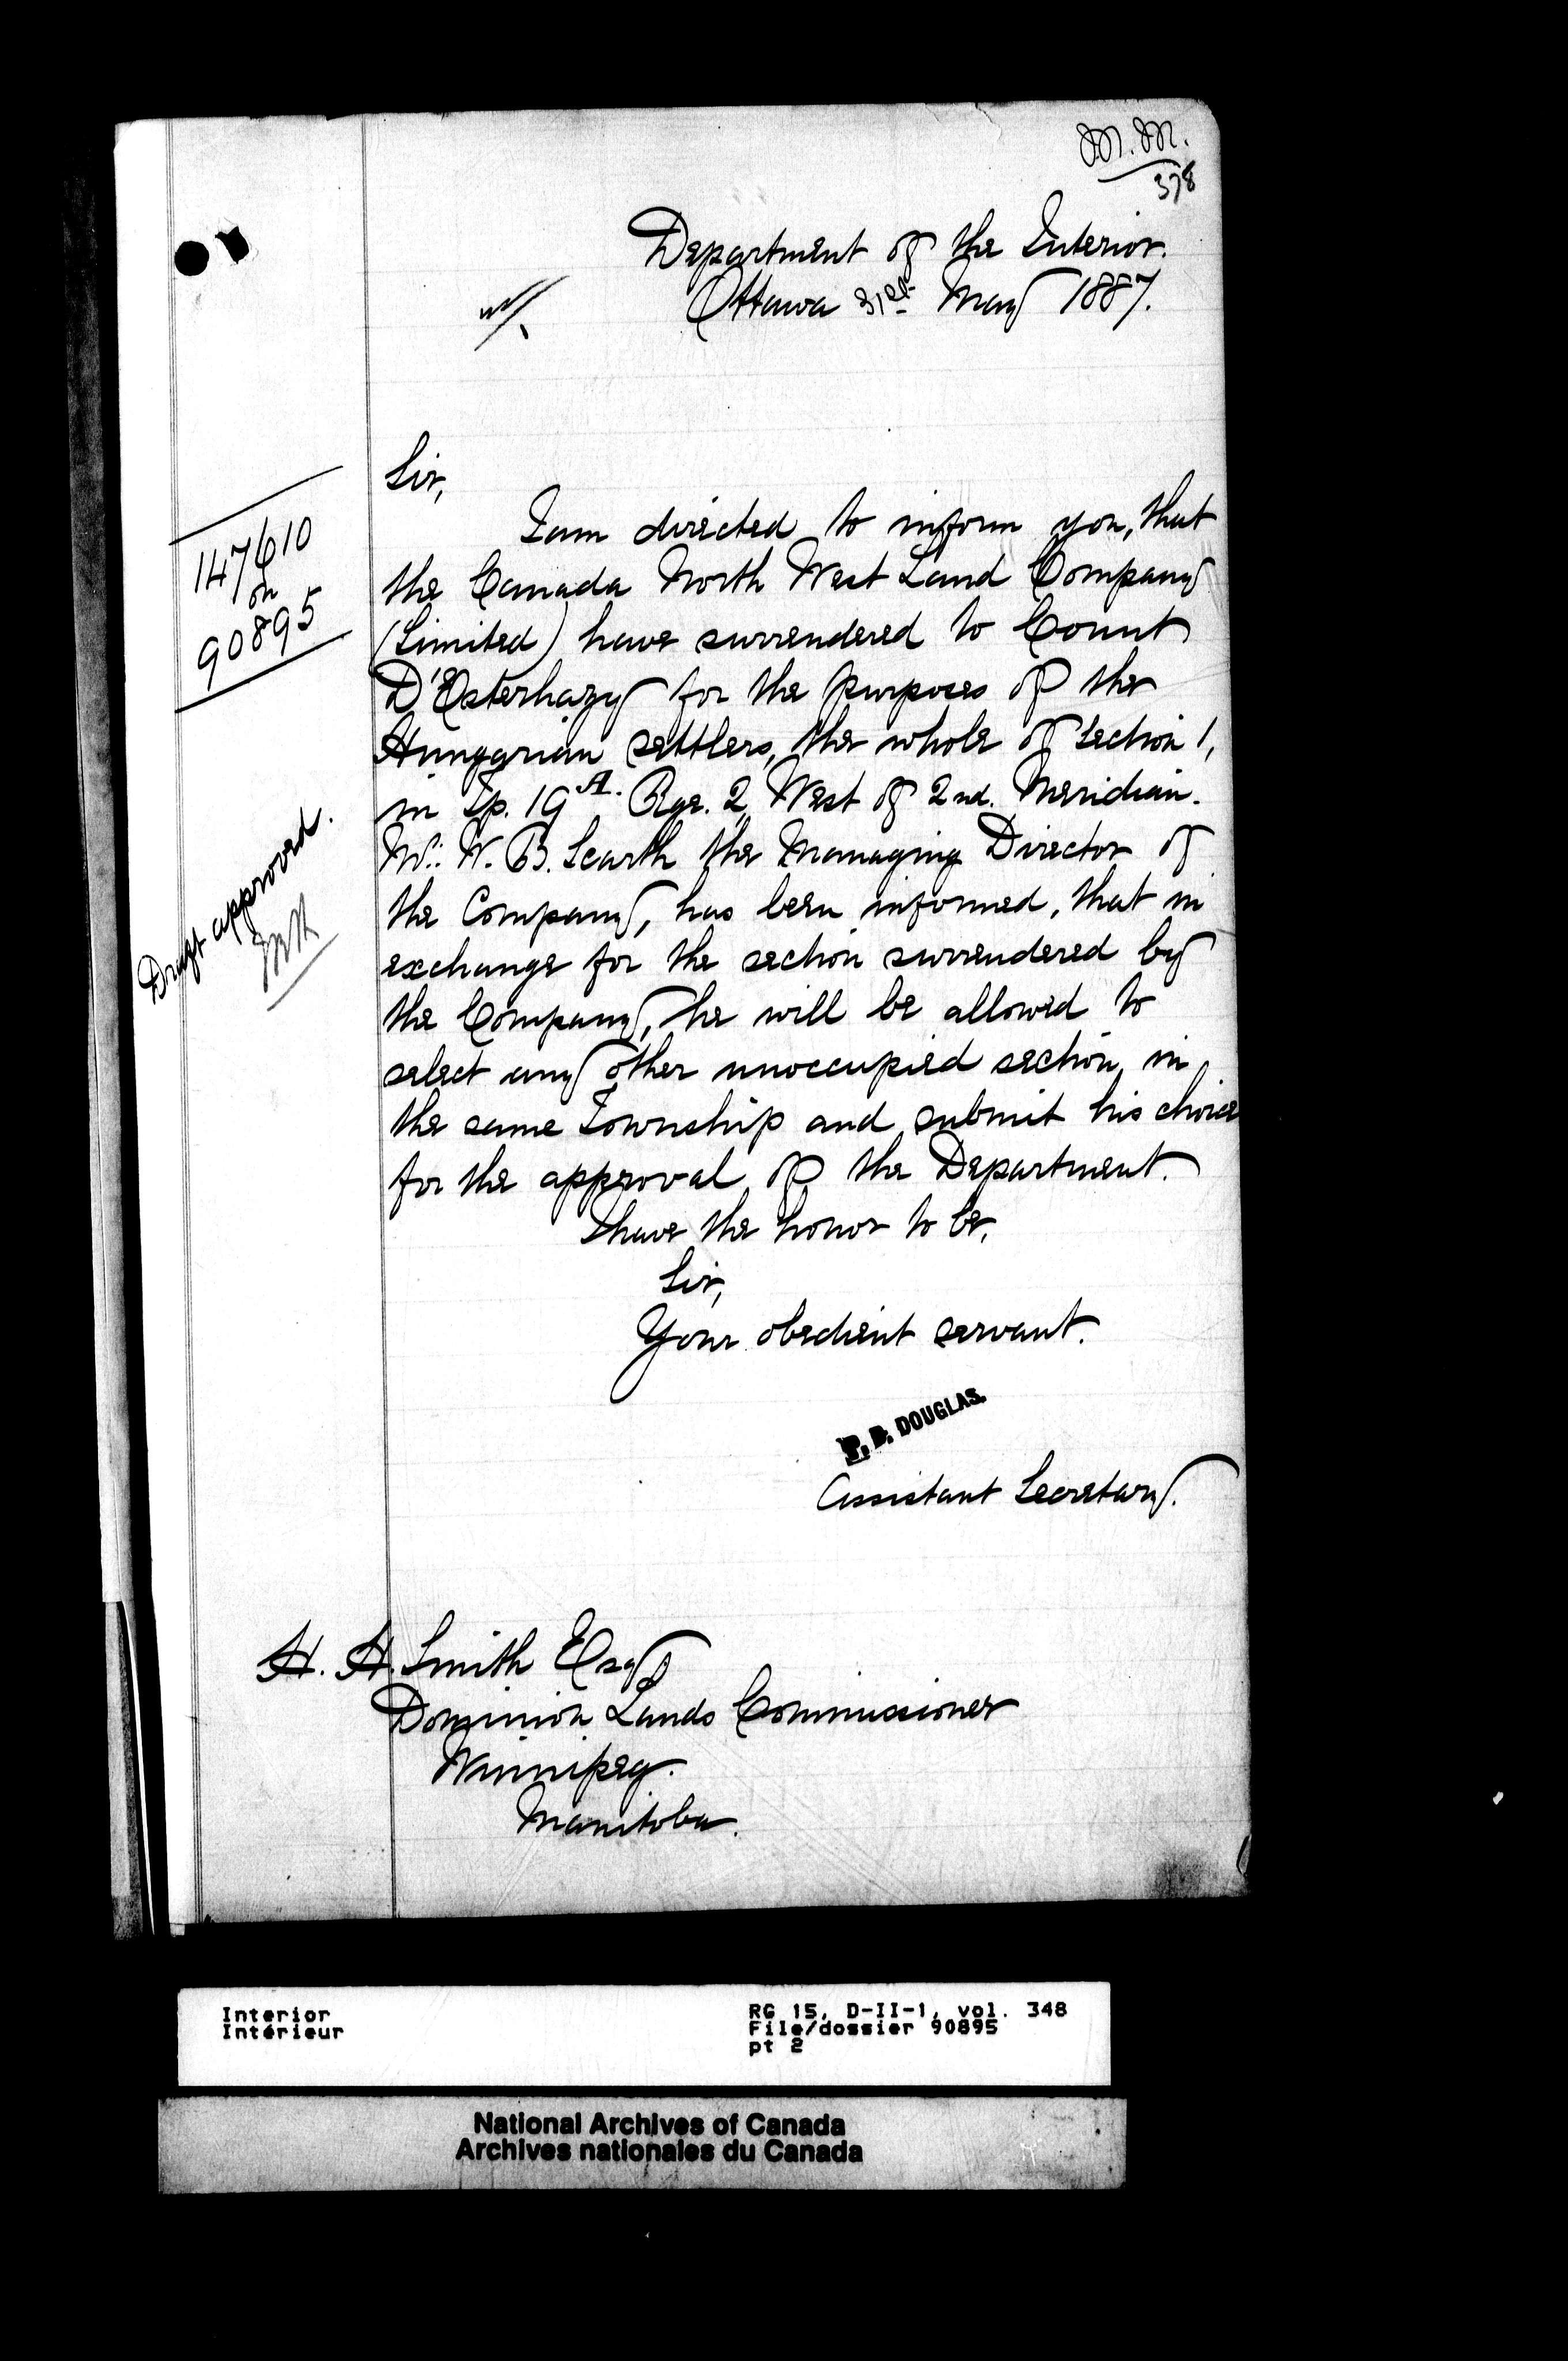 M.M.
378
Department of the Interior.
Ottawa 31st May 1887.
Sir,
147610
on
90895
I am directed to inform you, that
the Canada North West Land Company
(Limited) have surrendered to Count
D'Esterhazy for the purposes of the
Hunggrian settlers, the whole of Section 1,
in Tp. 19A. Rge. 2, West of 2nd. Meridian.
Mr. W. B. Scarth the Managing Director of
the Company, has been informed, that in
exchange for the section surrendered by
the Company, he will be allowed to
select any other unoccupied section, in
the same Township and submit his choice
for the approval of the Department.
Draft approved.
I have the honor to be,
Sir,
Your obedient servant.
P. B. DOUGLAS.
Assistant Secretary.
H. H. Smith Esq
Dominion Lands Commissioner
Winnipeg.
Manitoba.
Interior
Intérieur
RG 15, D-II-1, vol. 348
File/dossier 90895
pt 2
National Archives of Canada
Archives nationales du Canada